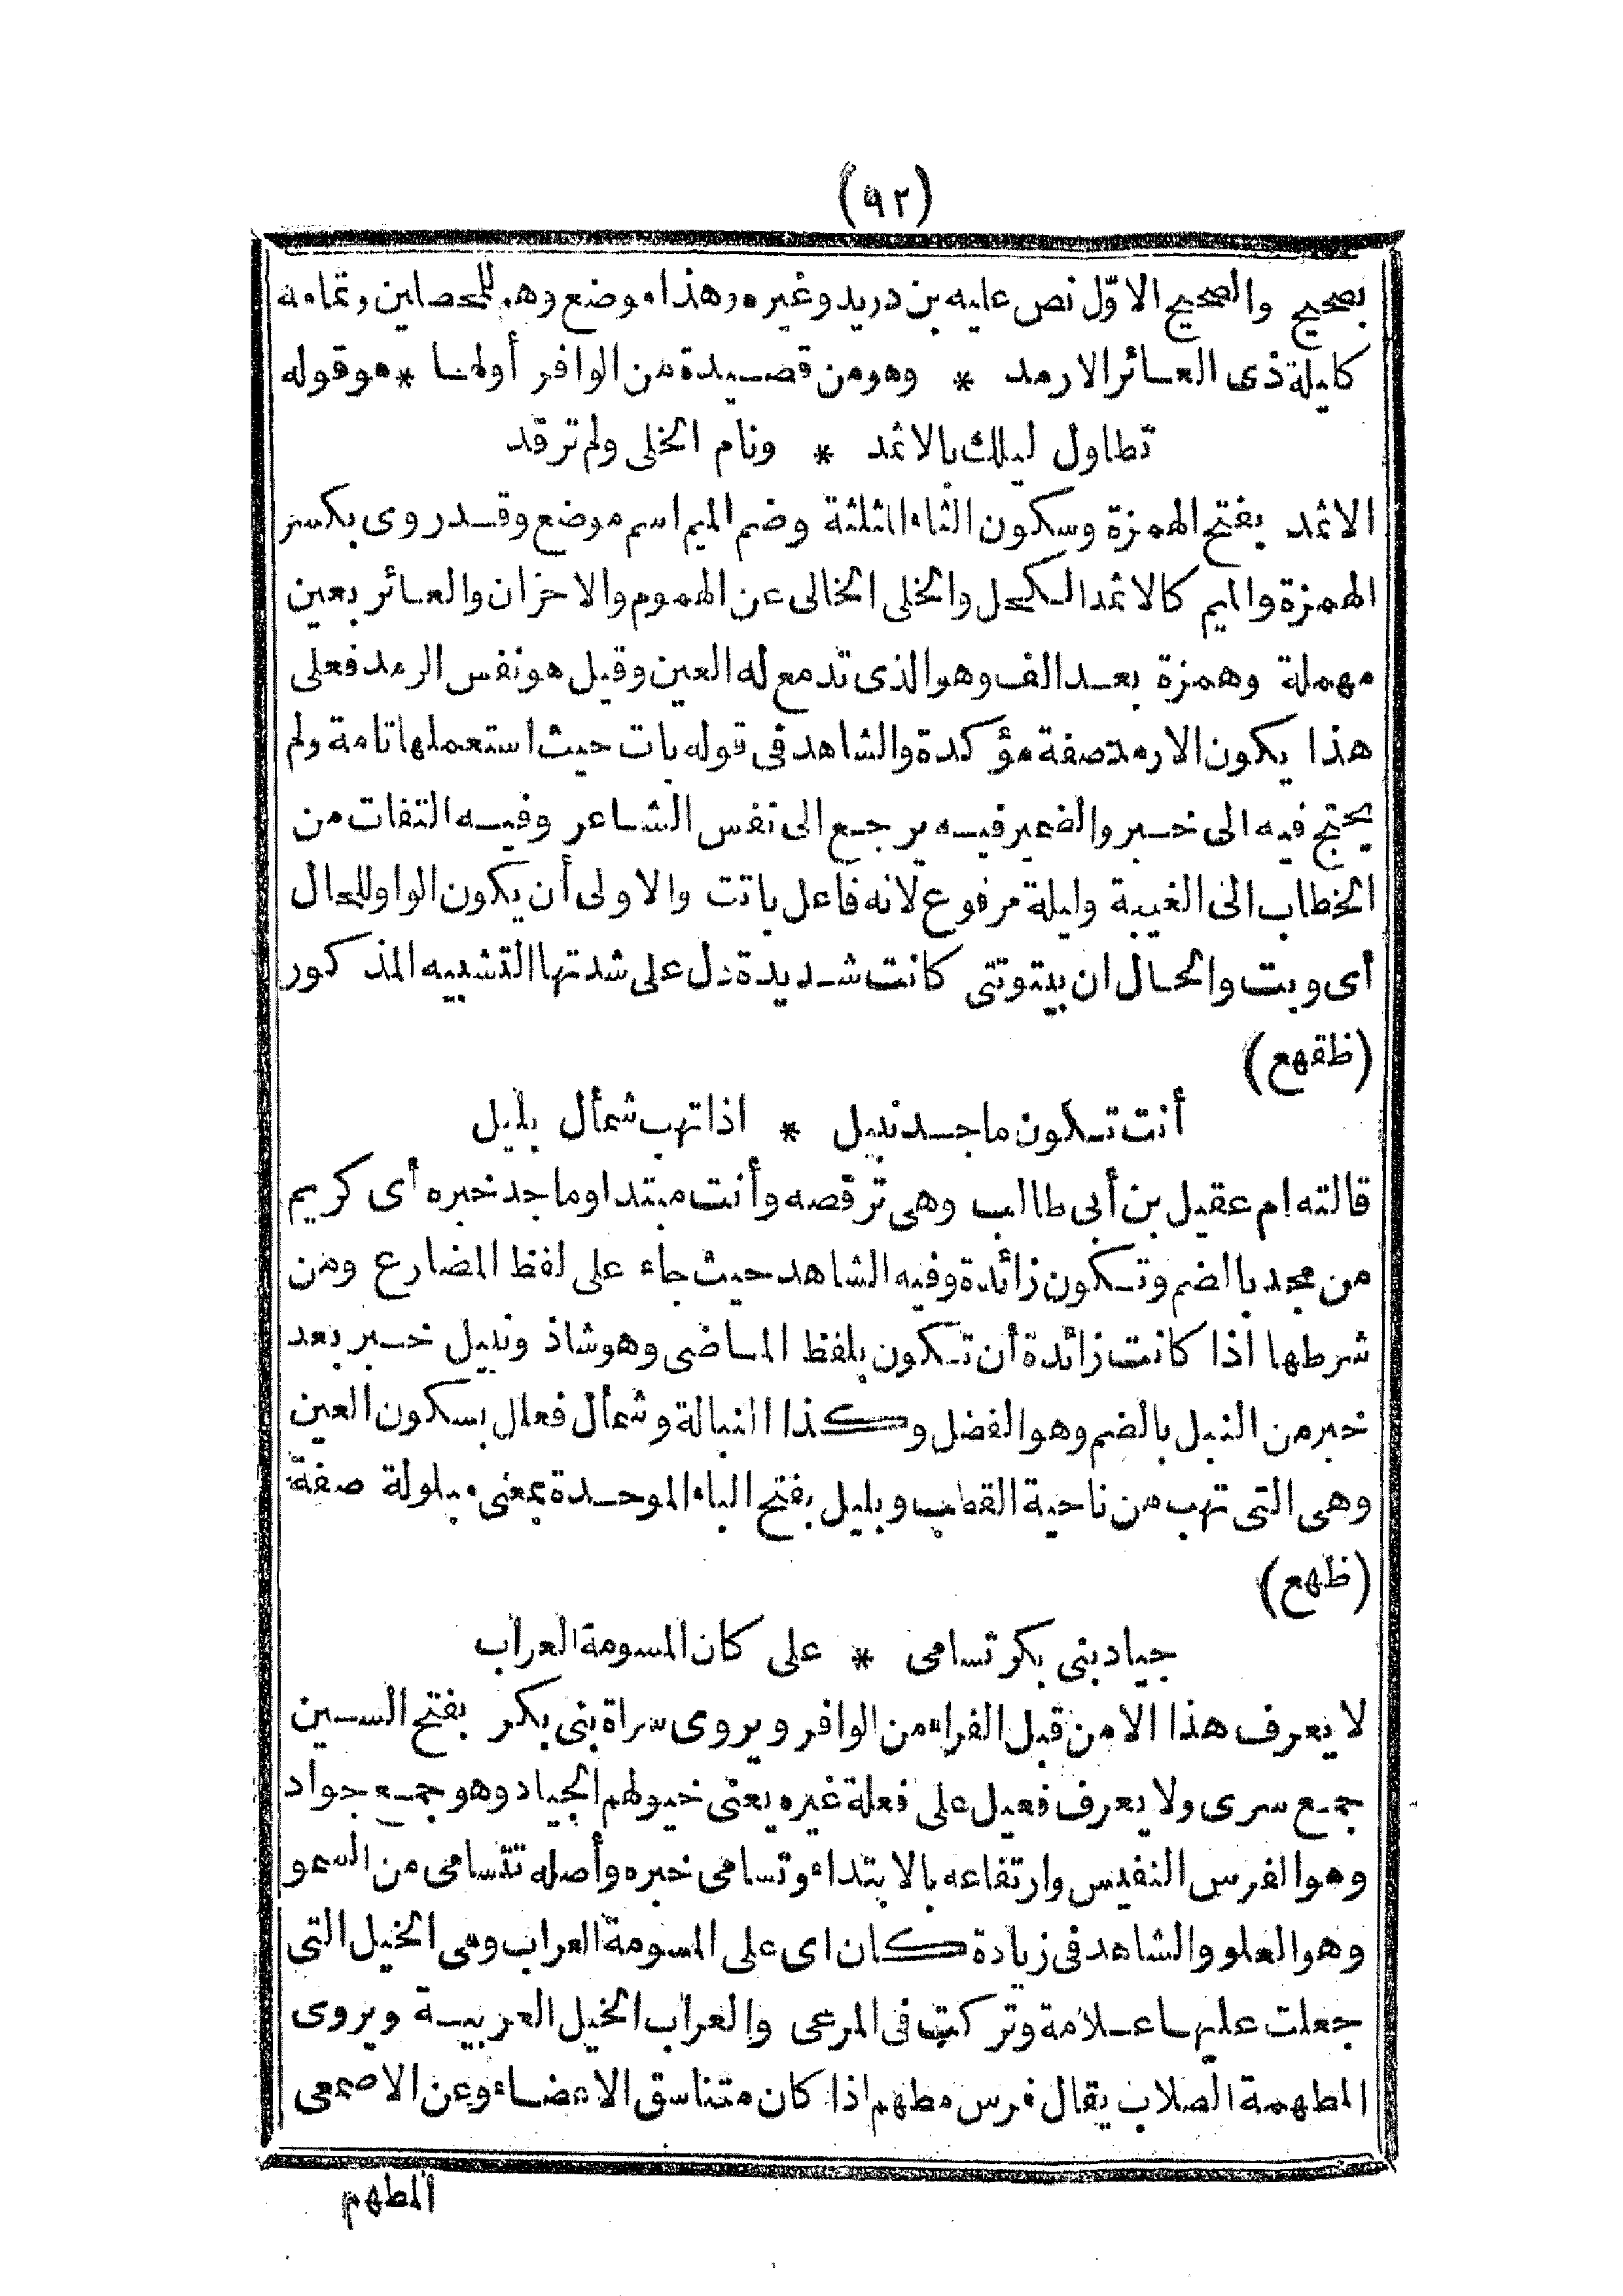 (٩٢)
بصحيح والصحيح الاوّل نص عليه بن دريد وغيره وهذا موضع وهم للمحصلين وتمامه
كليلة ذى العائر الارمد * وهو من قصيدة من الوافر أولها * هو قوله
تطاول ليلك بالاثمد * ونام الخلى ولم ترقد
الاثمد بفتح الهمزة وسكون الثاء المثلثة وضم الميم اسم موضع وقد روى بكسر
الهمزة والميم كالاثمد الكحل والخلى الخالى عن الهموم والاحزان والعائر بعين
مهملة وهمزة بعد الف وهو الذى تدمع له العين وقيل هو نفس الرمد فعلى
هذا يكون الارمد صفة مؤكدة والشاهد فى قوله بات حيث استعملها تامة ولم
يحتج فيه الى خبر والضمير فيه يرجع الى نفس الشاعر وفيه التفات من
الخطاب الى الغيبة وليلة مرفوع لانه فاعل باتت والاولى أن يكون الواو للحال
أى وبت والحال ان بيتوتتى كانت شديدة دل على شدتها التشبيه المذكور
(ظقهع)
أنت تكون ماجد نبيل * اذا تهب شمأل بليل
قالته ام عقيل بن أبى طالب وهى ترقصه وأنت مبتدا وماجد خبره أى كريم
من مجد بالضم وتكون زائدة وفيه الشاهد حيث جاء على لفظ المضارع ومن
شرطها اذا كانت زائدة أن تكون بلفظ الماضى وهو شاذ ونبيل خبر بعد
خبر من النبل بالضم وهو الفضل وكذا النبالة وشمأل فعال بسكون العين
وهى التى تهب من ناحية القطب وبليل بفتح الباء الموحدة بمعنى مبلولة صفة
(ظهع)
جياد بنى بكر تسامى * على كان المسومة العراب
لا يعرف هذا الا من قبل الفراء من الوافر ويروى سراة بنى بكر بفتح السين
جمع سرى ولا يعرف فعيل على فعلة غيره يعنى خيولهم الجياد وهو جمع جواد
وهو الفرس النفيس وارتفاعه بالابتداء وتسامى خبره وأصله تتسامى من السمو
وهو العلو والشاهد فى زيادة كان اى على المسومة العراب وهى الخيل التى
جعلت عليها علامة وتركت فى المرعى والعراب الخيل العربية ويروى
المطهمة الصلاب يقال فرس مطهم اذا كان متناسق الاعضاء وعن الاصمعى
المطهم